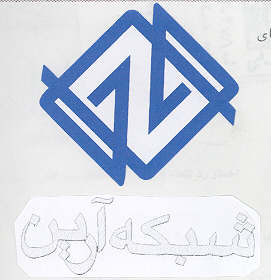 ای
شبکه آرین